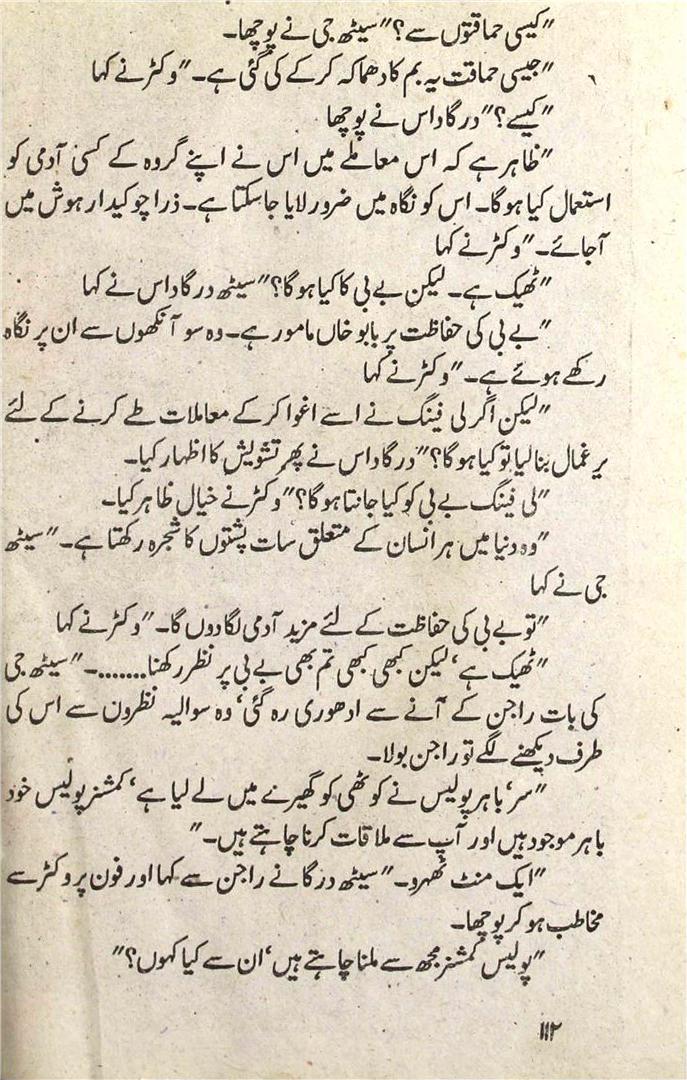 "کیسی حماقتوں سے؟" سیٹھ جی نے پوچھا۔
"جیسی حماقت یہ بم کا دھماکہ کرکے کی گئی ہے۔" وکٹر نے کہا
"کیسے؟" درگاداس نے پوچھا
"ظاہر ہے کہ اس معاملے میں اس نے اپنے گروہ کے کسی آدمی کو
استعمال کیا ہوگا۔ اس کو نگاہ میں ضرور لایا جاسکتا ہے۔ ذرا چوکیدار ہوش میں
آجائے۔" وکٹر نے کہا
"ٹھیک ہے۔ لیکن بے بی کا کیا ہوگا؟" سیٹھ درگاداس نے کہا
"بے بی کی حفاظت پر بابو خاں مامور ہے۔ وہ سو آنکھوں سے ان پر نگاہ
رکھے ہوئے ہے۔" وکٹر نے کہا
"لیکن اگر لی فینگ نے اسے اغوا کرکے معاملات طے کرنے کے لئے
یرغمال بنالیا تو کیا ہوگا؟" درگاداس نے پھر تشویش کا اظہار کیا۔
"لی فینگ بے بی کو کیا جانتا ہوگا؟" وکٹر نے خیال ظاہر کیا۔
"وہ دنیا میں ہر انسان کے متعلق سات پشتوں کا شجرہ رکھتا ہے۔" سیٹھ
جی نے کہا
"تو بے بی کی حفاظت کے لئے مزید آدمی لگادوں گا۔" وکٹر نے کہا
"ٹھیک ہے، لیکن کبھی کبھی تم بھی بے بی پر نظر رکھنا.......۔" سیٹھ جی
کی بات راجن کے آنے سے ادھوری رہ گئی، وہ سوالیہ نظروں سے اس کی
طرف دیکھنے لگے تو راجن بولا۔
"سر، باہر پولیس نے کوٹھی کو گھیرے میں لے لیا ہے، کمشنر پولیس خود
باہر موجود ہیں اور آپ سے ملاقات کرنا چاہتے ہیں۔"
"ایک منٹ ٹھہرو۔" سیٹھ درگا نے راجن سے کہا اور فون پر وکٹر سے
مخاطب ہو کر پوچھا۔
"پولیس کمشنر مجھ سے ملنا چاہتے ہیں، ان سے کیا کہوں؟"
۱۱۲